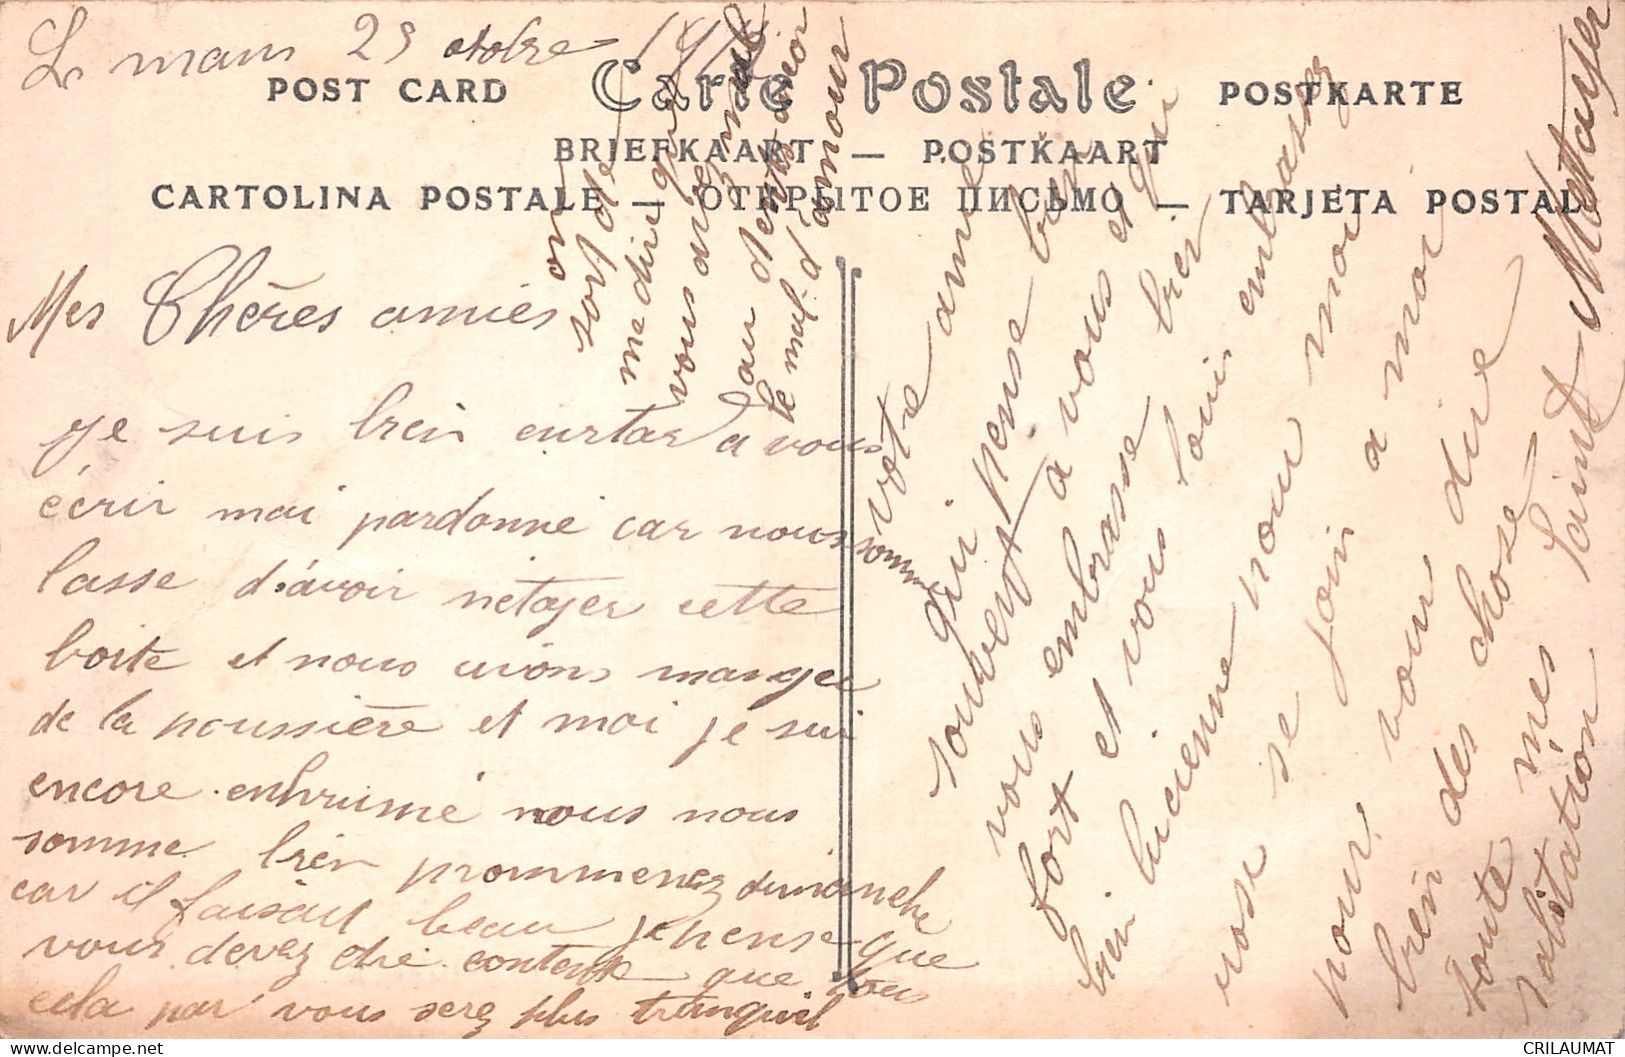 Le mans 25 octobre
POST CARD Carte Postale POSTKARTE
BRIEFKAART — POSTKAART
CARTOLINA POSTALE — ОТКРЫТОЕ ПИСЬМО — TARJETA POSTAL
Mes Chères amies
je suis bien enrtar a vous
écrir mai pardonne car nous somme
lasse d'avoir nétojer cette
boite et nous avions manger
de la poussière et moi je sui
encore enhrumé nous nous
somme bien prommenez dimanche
car il faisait beau je pense que
vous devez etre contente que tous
cela par vous serez plus tranquil
on
sort de
me dire que
vous avez mal
au dents
le mal d'amour
votre amie
qui pense bien
souvent a vous et qui
vous embrasse bien
fort et vous
bien Lucienne pour moi
rose se join a moi
pour vous dire
bien des chose
toute mes
salitation
Saint Metayer
CRILAUMAT